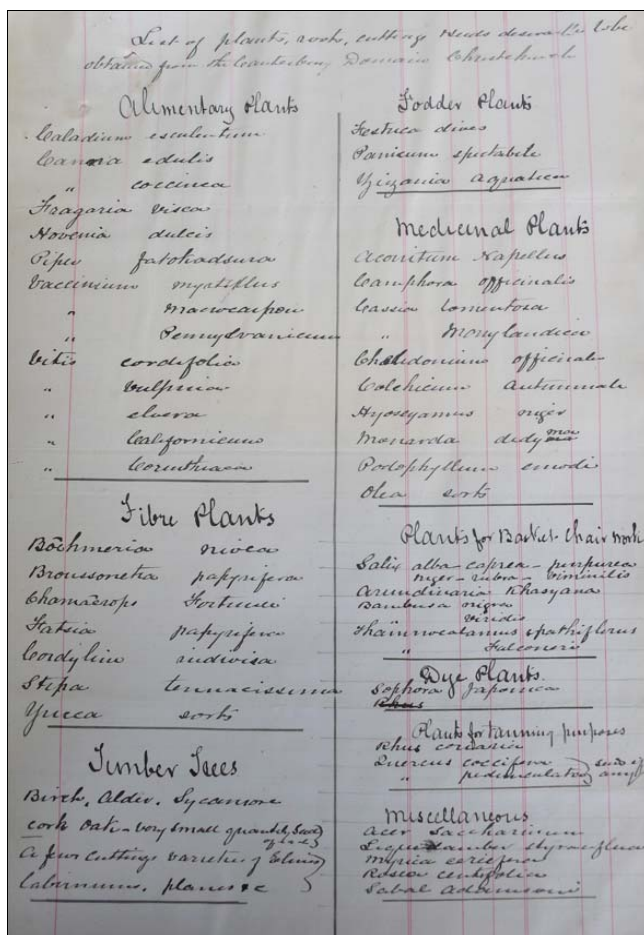 List of plants, roots, cuttings & seeds desirable to be
obtained from the Canterbury Domain Christchurch
Alimentary Plants
Caladium esculentum
Canna edulis
" coccinea
Fragaria visca
Hovenia dulcis
Piper
Vaccinium myrtillus
" macrocarpon
" Pennsylvanicum
Vitis cordifolia
" vulpina
"
" Californicum
" Corinthiaca
Fibre Plants
Böchmeria nivea
Broussonetia papyrifera
Chamaerops Fortunei
Fatsia papyrifera
Cordyline indivisa
Stipa tennacissima
Yucca sorts
Timber Trees
Birch, Alder, Sycamore
Cork Oak - very small quantity seed
A few cuttings varieties of Elms
Laburnums, planes &c
Fodder Plants
Festuca dives
Panicum spectabile
Zizania aquatica
Medicinal Plants
Aconitum Napellus
Camphora officinalis
Cassia tomentosa
" Marylandica
Chelidonium officinale
Colchicum autumnale
Hyoscyamus niger
Monarda didyma
Podophyllum emodi
Olea sorts
Plants for Basket-Chair work
Salix alba - caprea - purpurea
niger - rubra - viminilis
Arundinaria Khasyana
Bambusa nigra
" Viridis
Thamnocalamus spathiflorus
" Falconeri
Dye Plants
Sophora Japonica
Rhus
Plants for tanning purposes
Rhus coriaria
Quercus coccifera } seed if
" pedunculata } any
Miscellaneous
Acer Saccharinum
Liquidamber styraciflua
Myrica cerifera
Rosea centifolia
Sabal Adamsoni